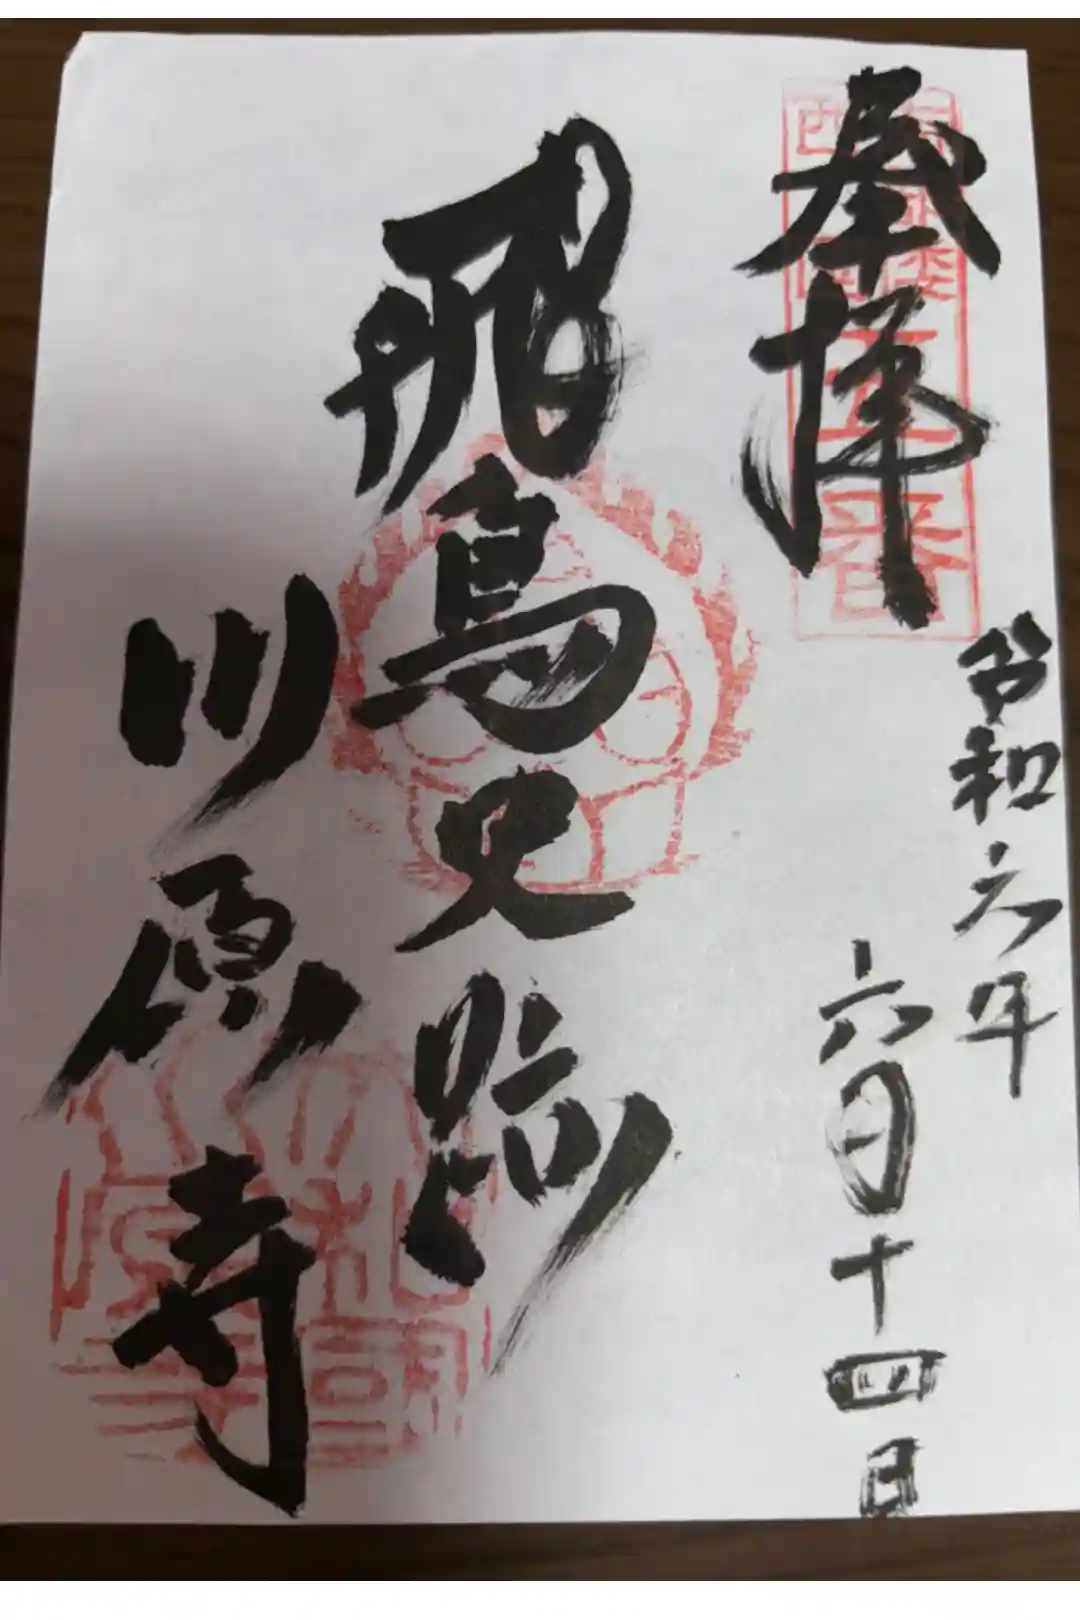 奉拝
令和六年
六月十四日
飛鳥史跡
川原寺